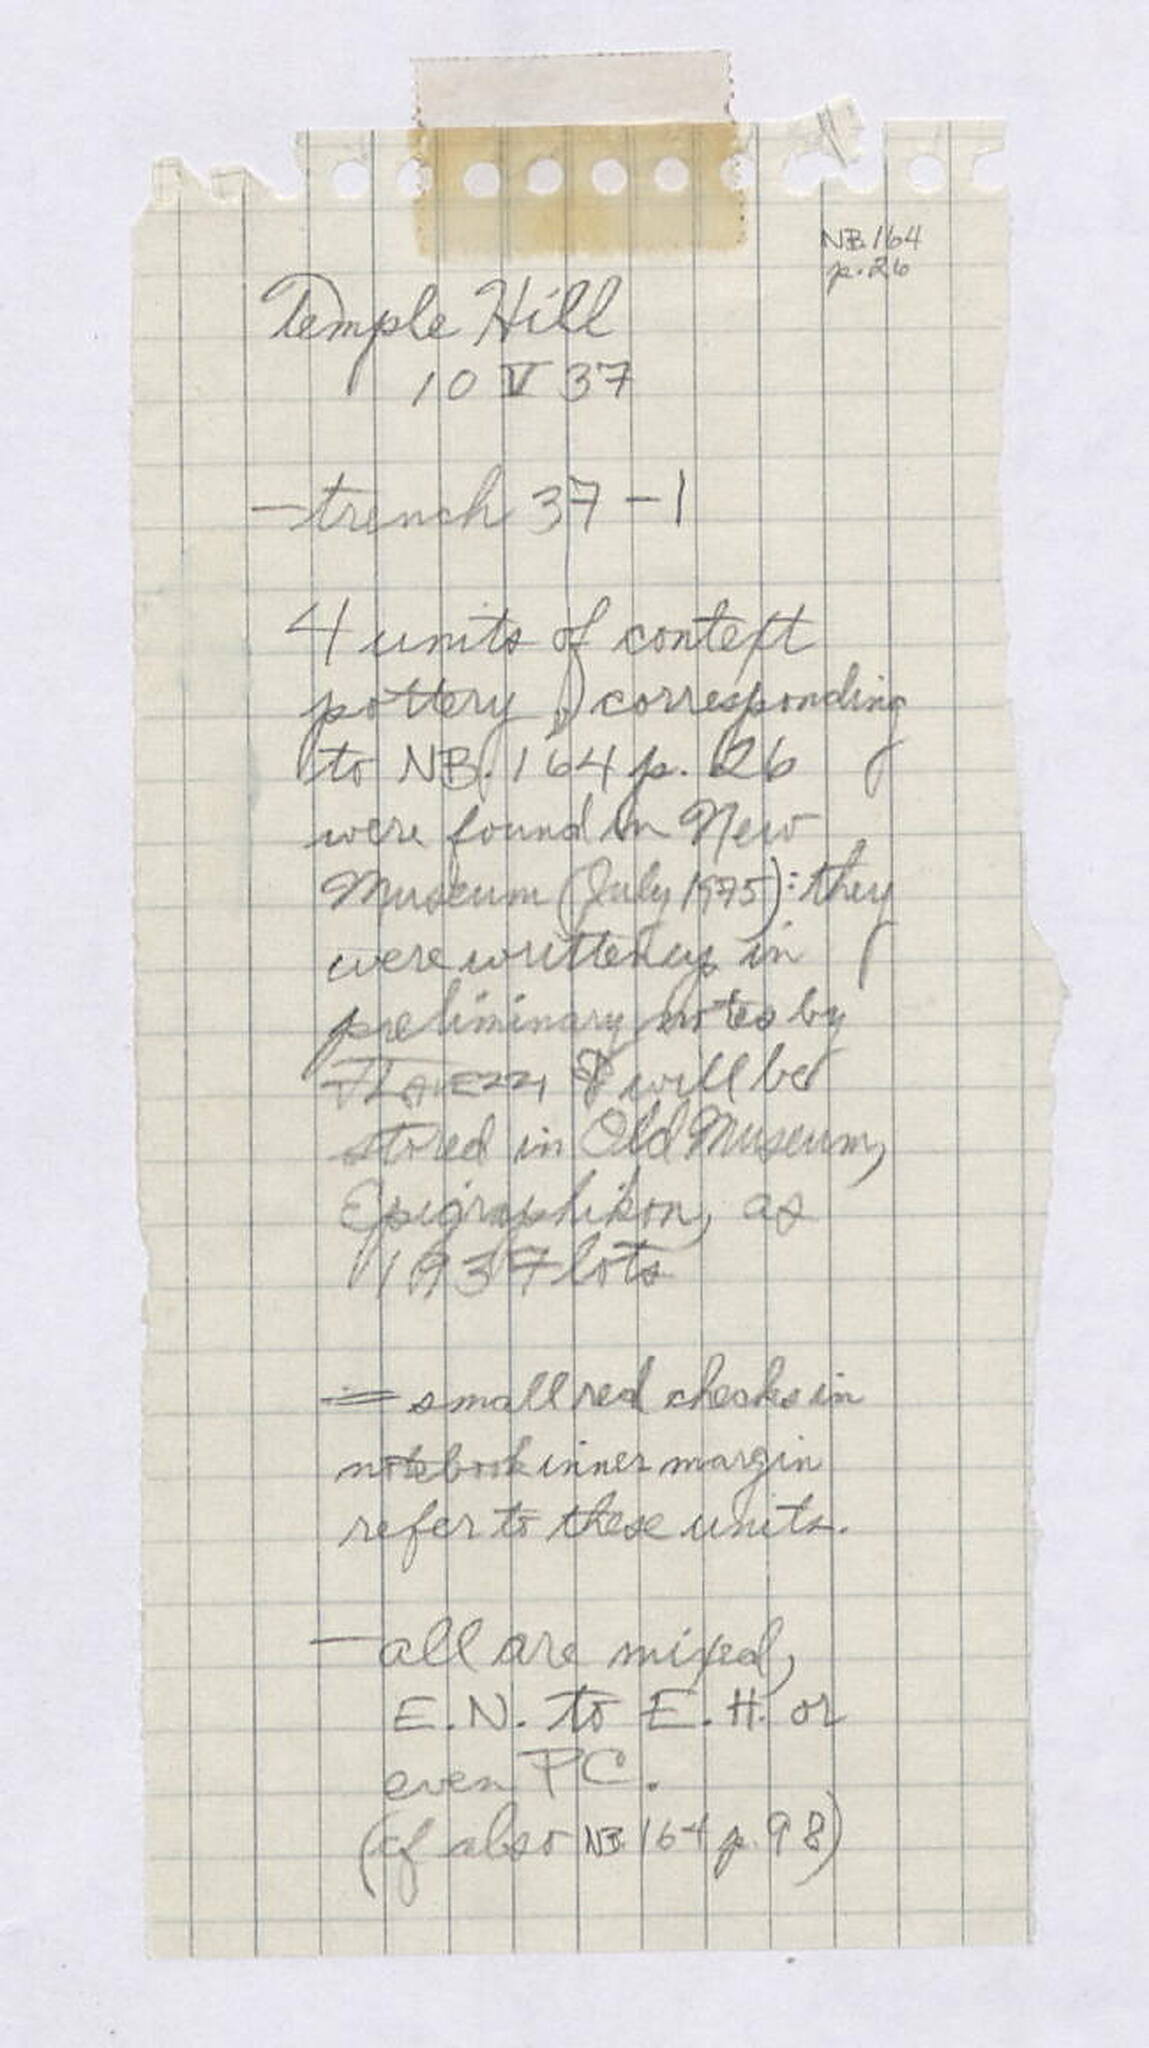 NB.164
p. 26
Temple Hill
10 V 37
— trench 37-1
4 units of context
pottery, corresponding
to NB. 164 p. 26
were found in New
Museum (July 1975): they
were written up in
preliminary notes by
& will be
stored in Old Museum,
Epigraphikon, as
1937 lots
= small red checks in
notebook inner margin
refer to these units.
— all are mixed,
E.N. to E.H. or
even PC.
(cf also NB 164 p. 98)